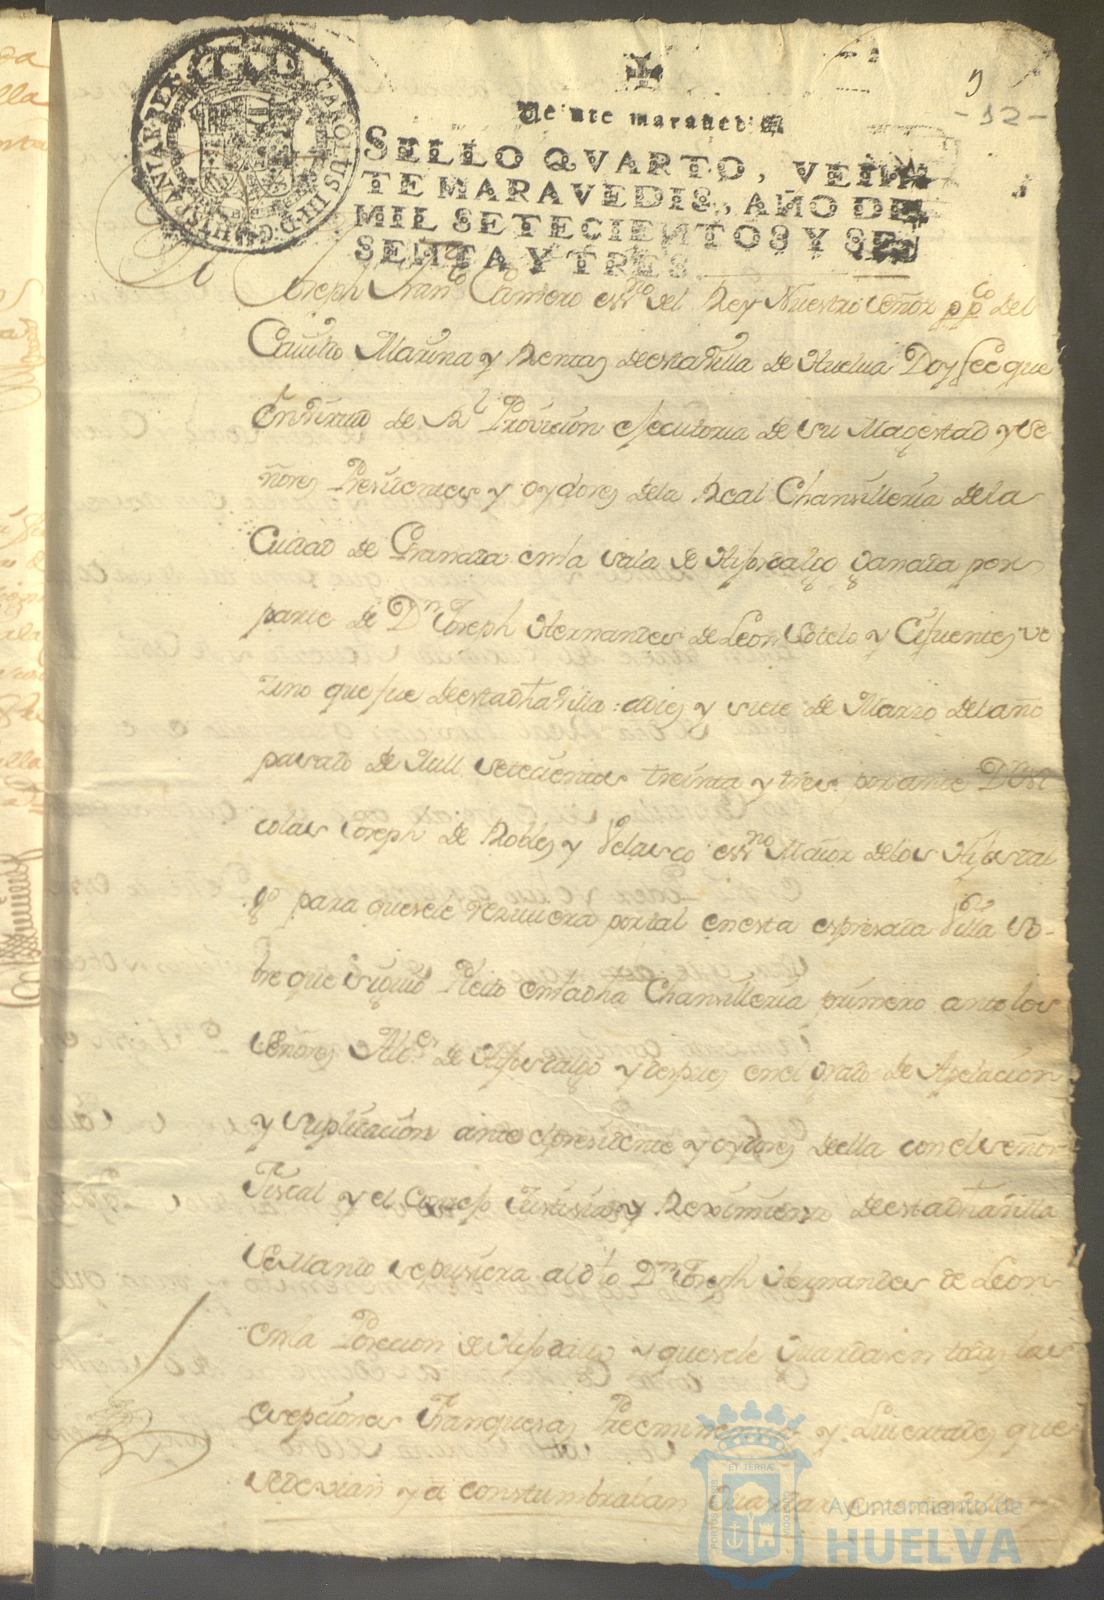 CAROLUS III D G HISPANIAR REX
9
-12-
Veinte maravedis
SELLO QVARTO, VEIN
TE MARAVEDIS, AÑO DE
MIL SETECIENTOS Y SE
SENTA Y TRES.
Joseph Franco Camero essno del Rey Nuestro Señor ppco del
Cauildo Marina y Rentas destauilla de Huelua Doy fee que
En Virtud de Rl Prouicion ejecutoria de su Magestad y Se
ñores Presidentes y oydores dela Real Chansilleria dela
Ciudad de Granada enla Sala de Hijosdalgo Ganada por
parte de Dn Joseph Hernandes de Leon Sotelo y Cifuentes ve
zino que fue destadha Villa: adies y siete de Marzo delaño
pasado de Mill Setecientos treinta y tres por ante Dn Ni
colas Joseph de Robles y Velasco essno Maior delos Hijosdal
go para quesele resiuiera portal enesta espresada Villa So-
bre que Siguio Pleito enladha Chansilleria primero antelos
Señores Alces de Hijosdalgo y despues enel Grado de Apelacion
y Suplicacion ante el presidente y oydores della con el Señor
Fiscal y el Consejo Justisia y Reximiento destadhauilla
Se Mando Sepusiera aldho Dn Joseph Hernandes de Leon
enla Posecion de Hijodalgo y quesele Guardasen todas las
esepciones Franquesas Preeminencias y Liuertades que
Sedeuian y a constumbraban Guardar
ET TERRÆ
PORTUS MARIS
CUSTODIA
Ayuntamiento de
HUELVA